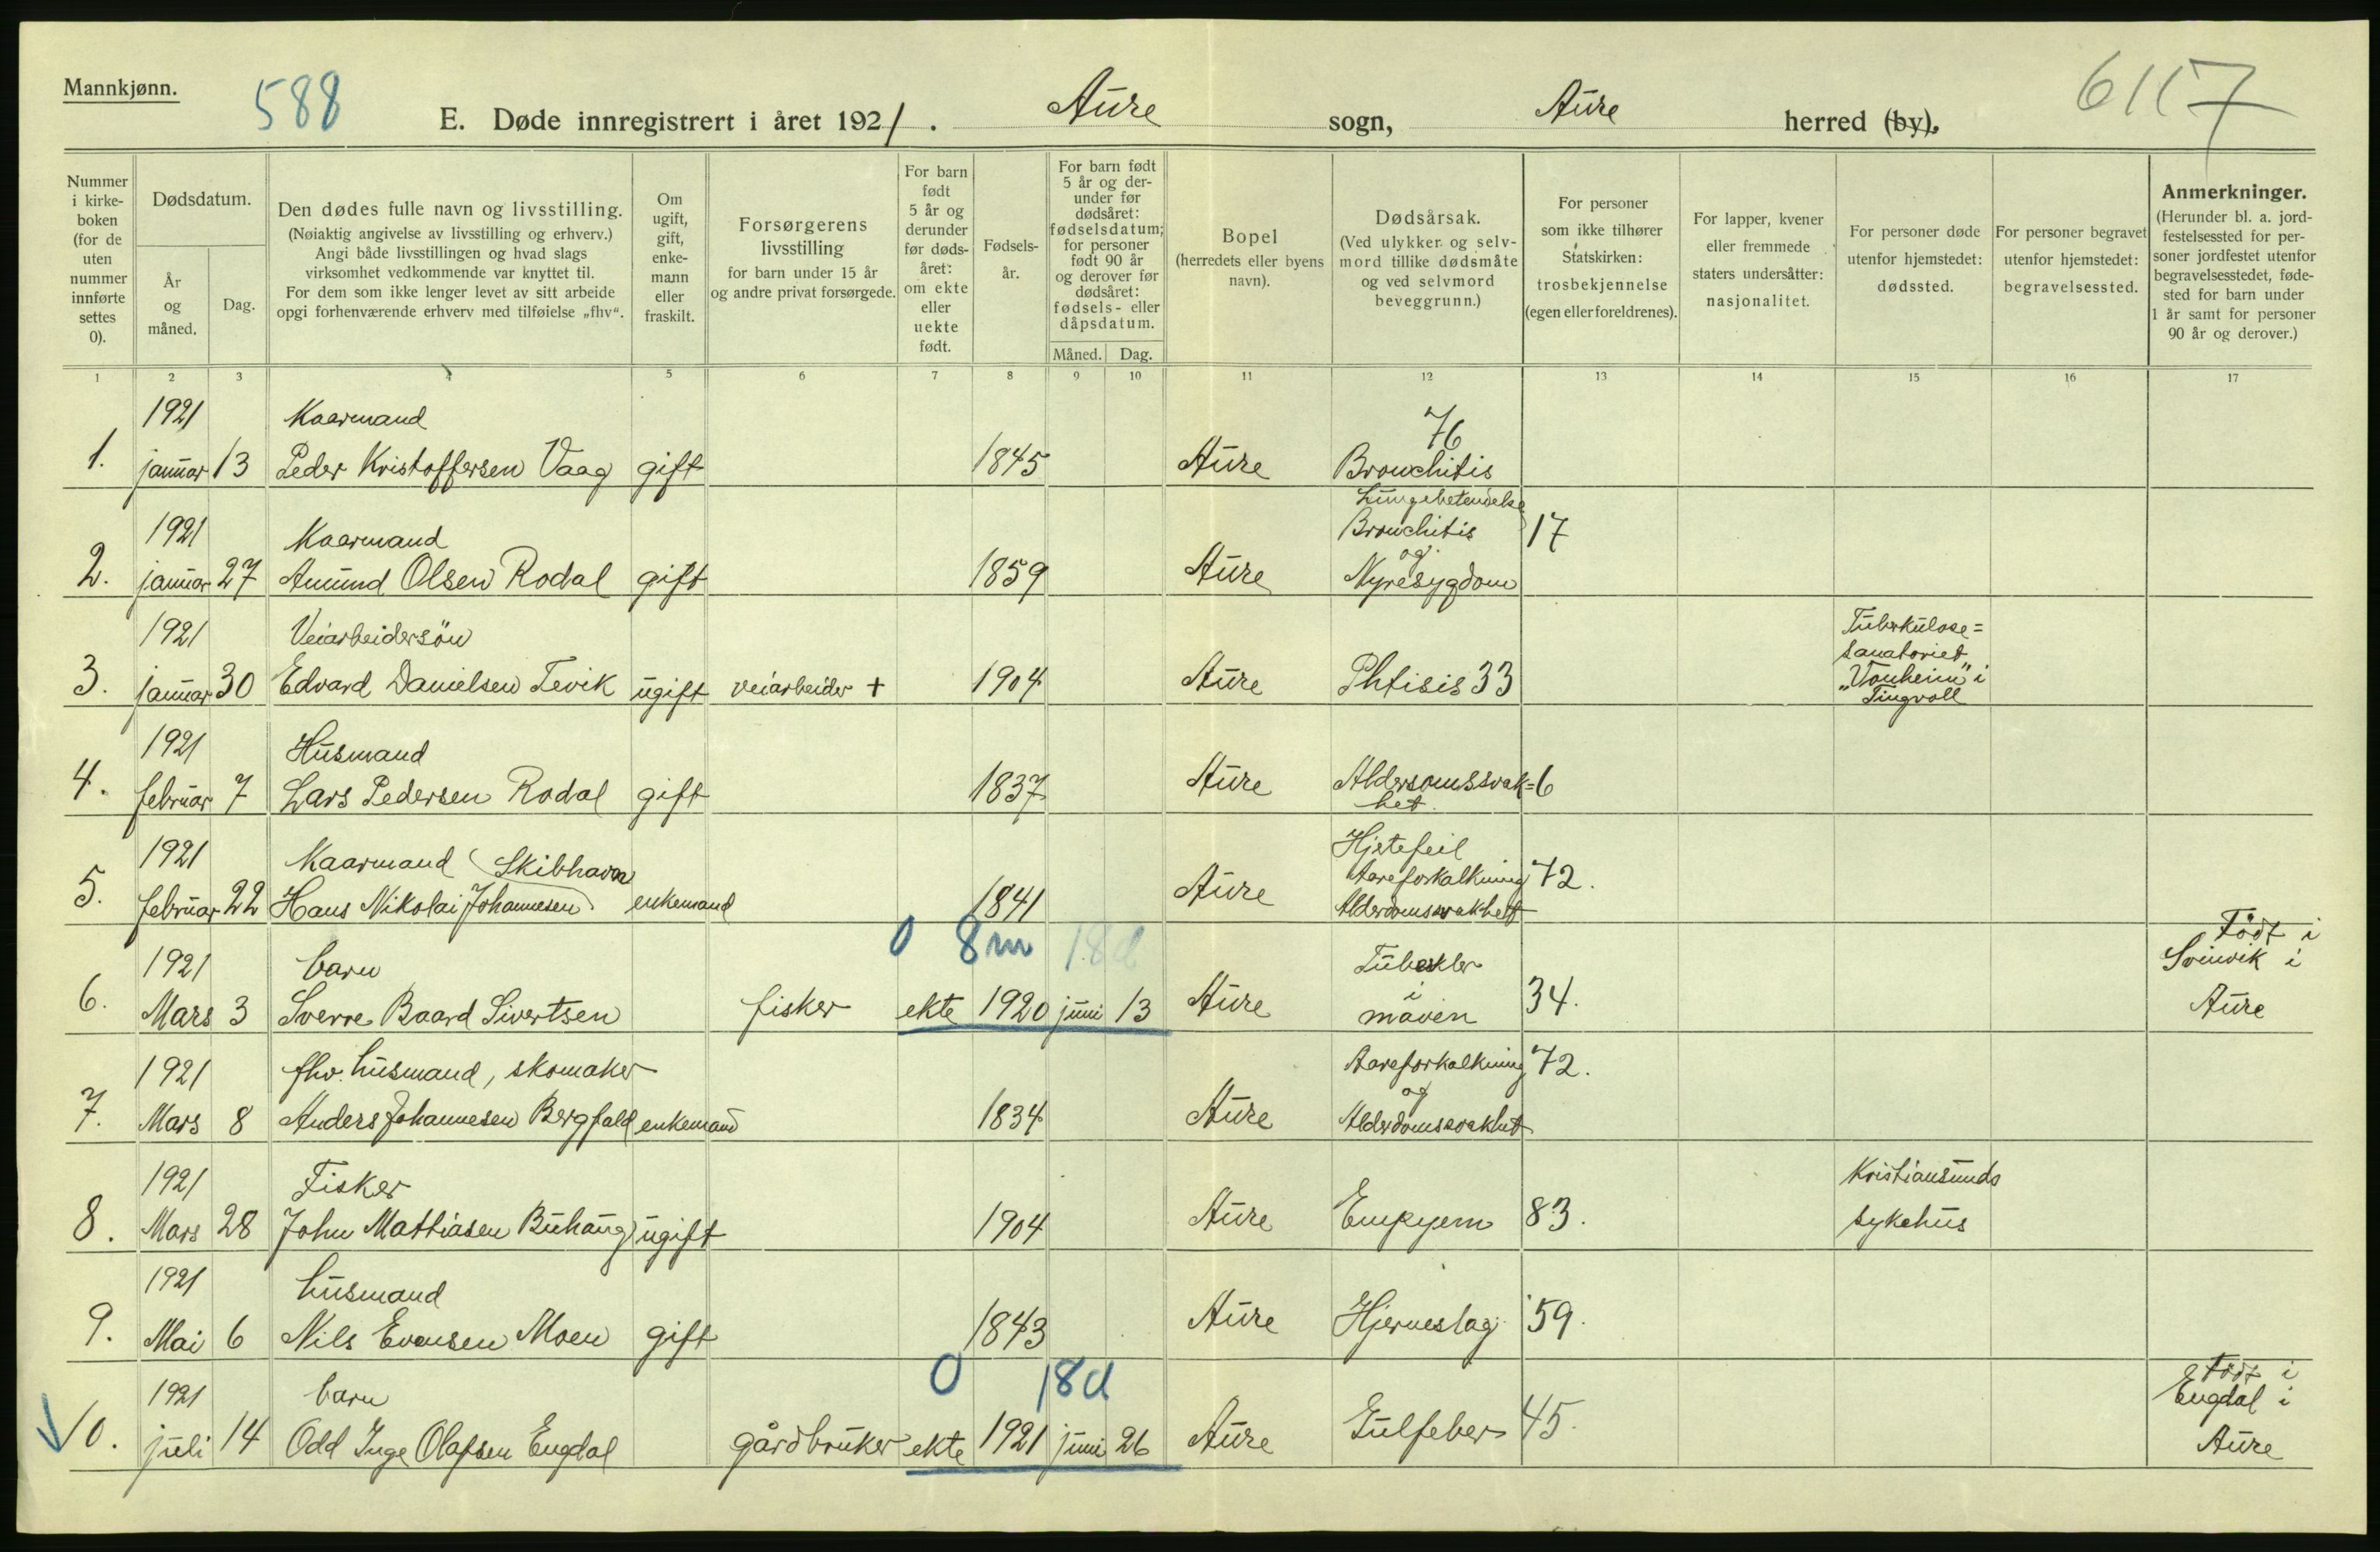 Mannkjønn.
588
E. Døde innregistrert i året 1921.
Aure
sogn,
Aure
herred (by).
6117
Nummer
i kirke-
boken
(for de
uten
nummer
innførte
settes
0).
Dødsdatum.
År
og
måned.
Dag.
Den dødes fulle navn og livsstilling.
(Nøiaktig angivelse av livsstilling og erhverv.)
Angi både livsstillingen og hvad slags
virksomhet vedkommende var knyttet til.
For dem som ikke lenger levet av sitt arbeide
opgi forhenværende erhverv med tilføielse „fhv“.
Om
ugift,
gift,
enke-
mann
eller
fraskilt.
Forsørgerens
livsstilling
for barn under 15 år
og andre privat forsørgede.
For barn
født
5 år og
derunder
før døds-
året:
om ekte
eller
uekte
født.
Fødsels-
år.
For barn født
5 år og der-
under før
dødsåret:
fødselsdatum;
for personer
født 90 år
og derover før
dødsåret:
fødsels- eller
dåpsdatum.
Måned. Dag.
Bopel
(herredets eller byens
navn).
Dødsårsak.
(Ved ulykker og selv-
mord tillike dødsmåte
og ved selvmord
beveggrunn.)
For personer
som ikke tilhører
Statskirken:
trosbekjennelse
(egen eller foreldrenes).
For lapper, kvener
eller fremmede
staters undersåtter:
nasjonalitet.
For personer døde
utenfor hjemstedet:
dødssted.
For personer begravet
utenfor hjemstedet:
begravelsessted.
Anmerkninger.
(Herunder bl. a. jord-
festelsessted for per-
soner jordfestet utenfor
begravelsesstedet, føde-
sted for barn under
1 år samt for personer
90 år og derover.)
1 2 3 4 5 6 7 8 9 10 11 12 13 14 15 16 17
1921 Kaarmand 76
1. januar 13 Peder Kristoffersen Vaag gift 1845 Aure Bronchitis
Lungebetendelse
1921 Kaarmand Bronchitis 17
og
2. januar 27 Amund Olsen Rodal gift 1859 Aure Nyresygdom
1921 Veiarbeidersön Tuberkulose=
sanatoriet
3. januar 30 Edvard Danielsen Tevik ugift veiarbeider + 1904 Aure Phtisis 33 „Vonheim“ i
Tingvoll
1921 Husmand
4. februar 7 Lars Pedersen Rodal gift 1837 Aure Aldersomssvak= 6
het.
1921 Kaarmand (Skibhavn Hjetefeil
Aareforkalkning 72.
5. februar 22 Hans Nikolai Johannesen) enkemand 1841 Aure Alderdomssvakhet
0 8m 18d
1921 barn Tuberkler Født i
Svinvik i
6. Mars 3 Sverre Baard Sivertsen fisker ekte 1920 juni 13 Aure i maven 34. Aure
1921 fhv. husmand, skomaker Aareforkalkning 72.
og
7. Mars 8 Anders Johannesen Bergfald enkemand 1834 Aure Alderdomssvakhet
1921 Fisker Kristiansunds
8. Mars 28 John Mathiasen Buhaug ugift 1904 Aure Empyem 83. sykehus
1921 husmand
9. Mai 6 Nils Evensen Moen gift 1843 Aure Hjerneslag 59.
0 18d
1921 barn Født i
Engdal i
10. juli 14 Odd Inge Olafsen Engdal gårdbruker ekte 1921 juni 26 Aure Gulfeber 45. Aure